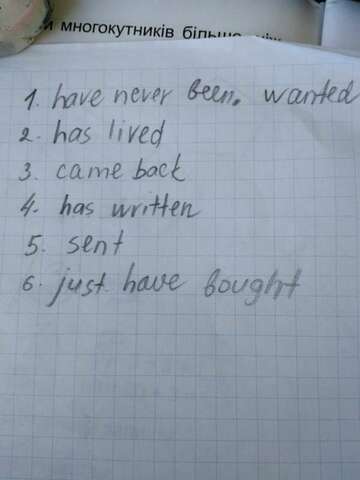 и многокутників більше ніж
1. have never been. wanted
2. has lived
3. came back
4. has written
5. sent
6. just have bought